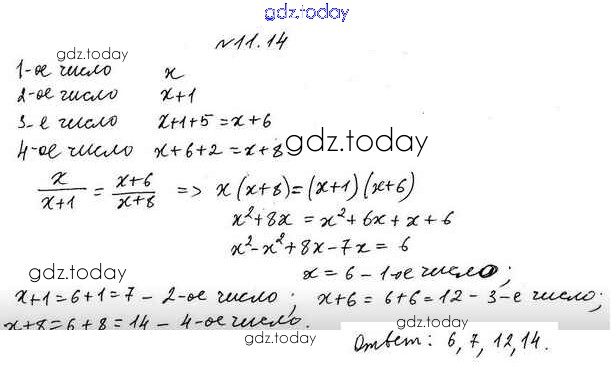 gdz.today
№11.14
gdz.today
1-ое число x
2-ое число x+1
3-е число x+1+5=x+6
gdz.today
4-ое число x+6+2=x+8
x/(x+1) = (x+6)/(x+8) => x(x+8)=(x+1)(x+6)
x²+8x = x²+6x+x+6
x²-x²+8x-7x = 6
gdz.today
x = 6 - 1-ое число;
x+1=6+1=7 - 2-ое число; x+6=6+6=12 - 3-е число;
x+8=6+8=14 - 4-ое число.
gdz.today
gdz.today
Ответ: 6, 7, 12, 14.
gdz.today